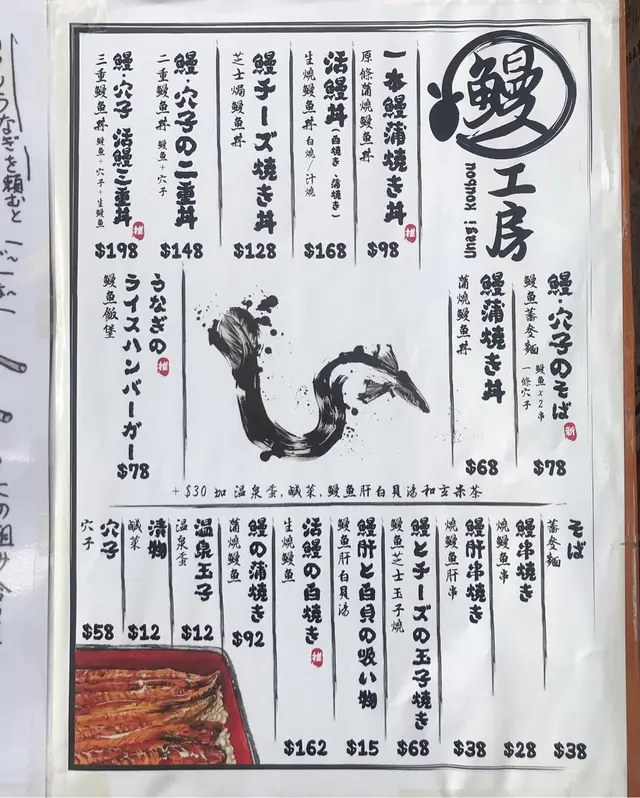 鰻
工房
unagi koubou
一本鰻蒲焼き丼
原條蒲燒鰻魚丼
推
$98
活鰻丼(白焼き・蒲焼き)
生燒鰻魚丼 白燒/汁燒
$168
鰻チーズ焼き丼
芝士焗鰻魚丼
$128
鰻・穴子の二重丼
二重鰻魚丼 鰻魚+穴子
$148
鰻・穴子 活鰻三重丼
三重鰻魚丼 鰻魚+穴子+生鰻魚
推
$198
鰻・穴子のそば
鰻魚蕎麥麵 鰻魚x2串 一條穴子
新
$78
鰻蒲焼き丼
蒲燒鰻魚丼
$68
うなぎの
ライスハンバーガー
鰻魚飯堡
推
$78
+$30 加 溫泉蛋,鹹菜,鰻魚肝白貝湯和玄米茶
そば
蕎麥麵
$38
鰻串焼き
燒鰻魚串
$28
鰻肝串焼き
燒鰻魚肝串
$38
鰻とチーズの玉子焼き
鰻魚芝士玉子燒
$68
鰻肝と白貝の吸い物
鰻魚肝白貝湯
$15
活鰻の白焼き
生燒鰻魚
推
$162
鰻の蒲焼き
蒲燒鰻魚
$92
温泉玉子
溫泉蛋
$12
漬物
鹹菜
$12
穴子
穴子
$58
うなぎを頼むと